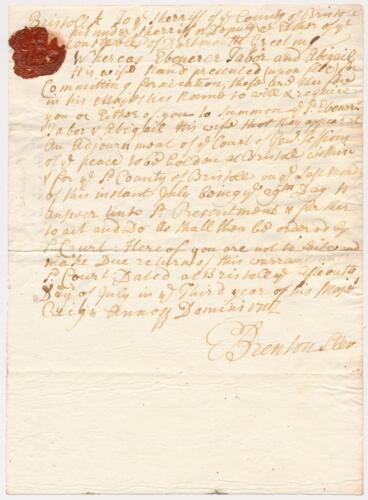 Bristoll ss To ye Sherriff of ye County of Bristol
his under Sherriff or Deputy or Either of ye
Constables of Dartmouth Greeting
Whereas Ebenezer Tabor and Abigail
His wife Stand presented upon
Committing fornication, these are therefore
in his Majesties Name to will & require
you or Either of you to Summon ye Sd Ebenezer
Tabor & Abigail His wife that they appear at
An Adjournment of ye Court of Genll Sessions
of ye peace to be holden at Bristol within
& for ye Sd County of Bristol on ye Last
of this instant July being ye 29th Day to
Answer unto Sd Presentment & further
to act and Do As shall then be ordered by
Sd Court: Hereof you are not to faile and
make Due returne of this warrant
Sd Court Dated at Bristol ye
Day of July in ye Third year of his Majts
Reign Annoq Domini 1717
Brenton Cler